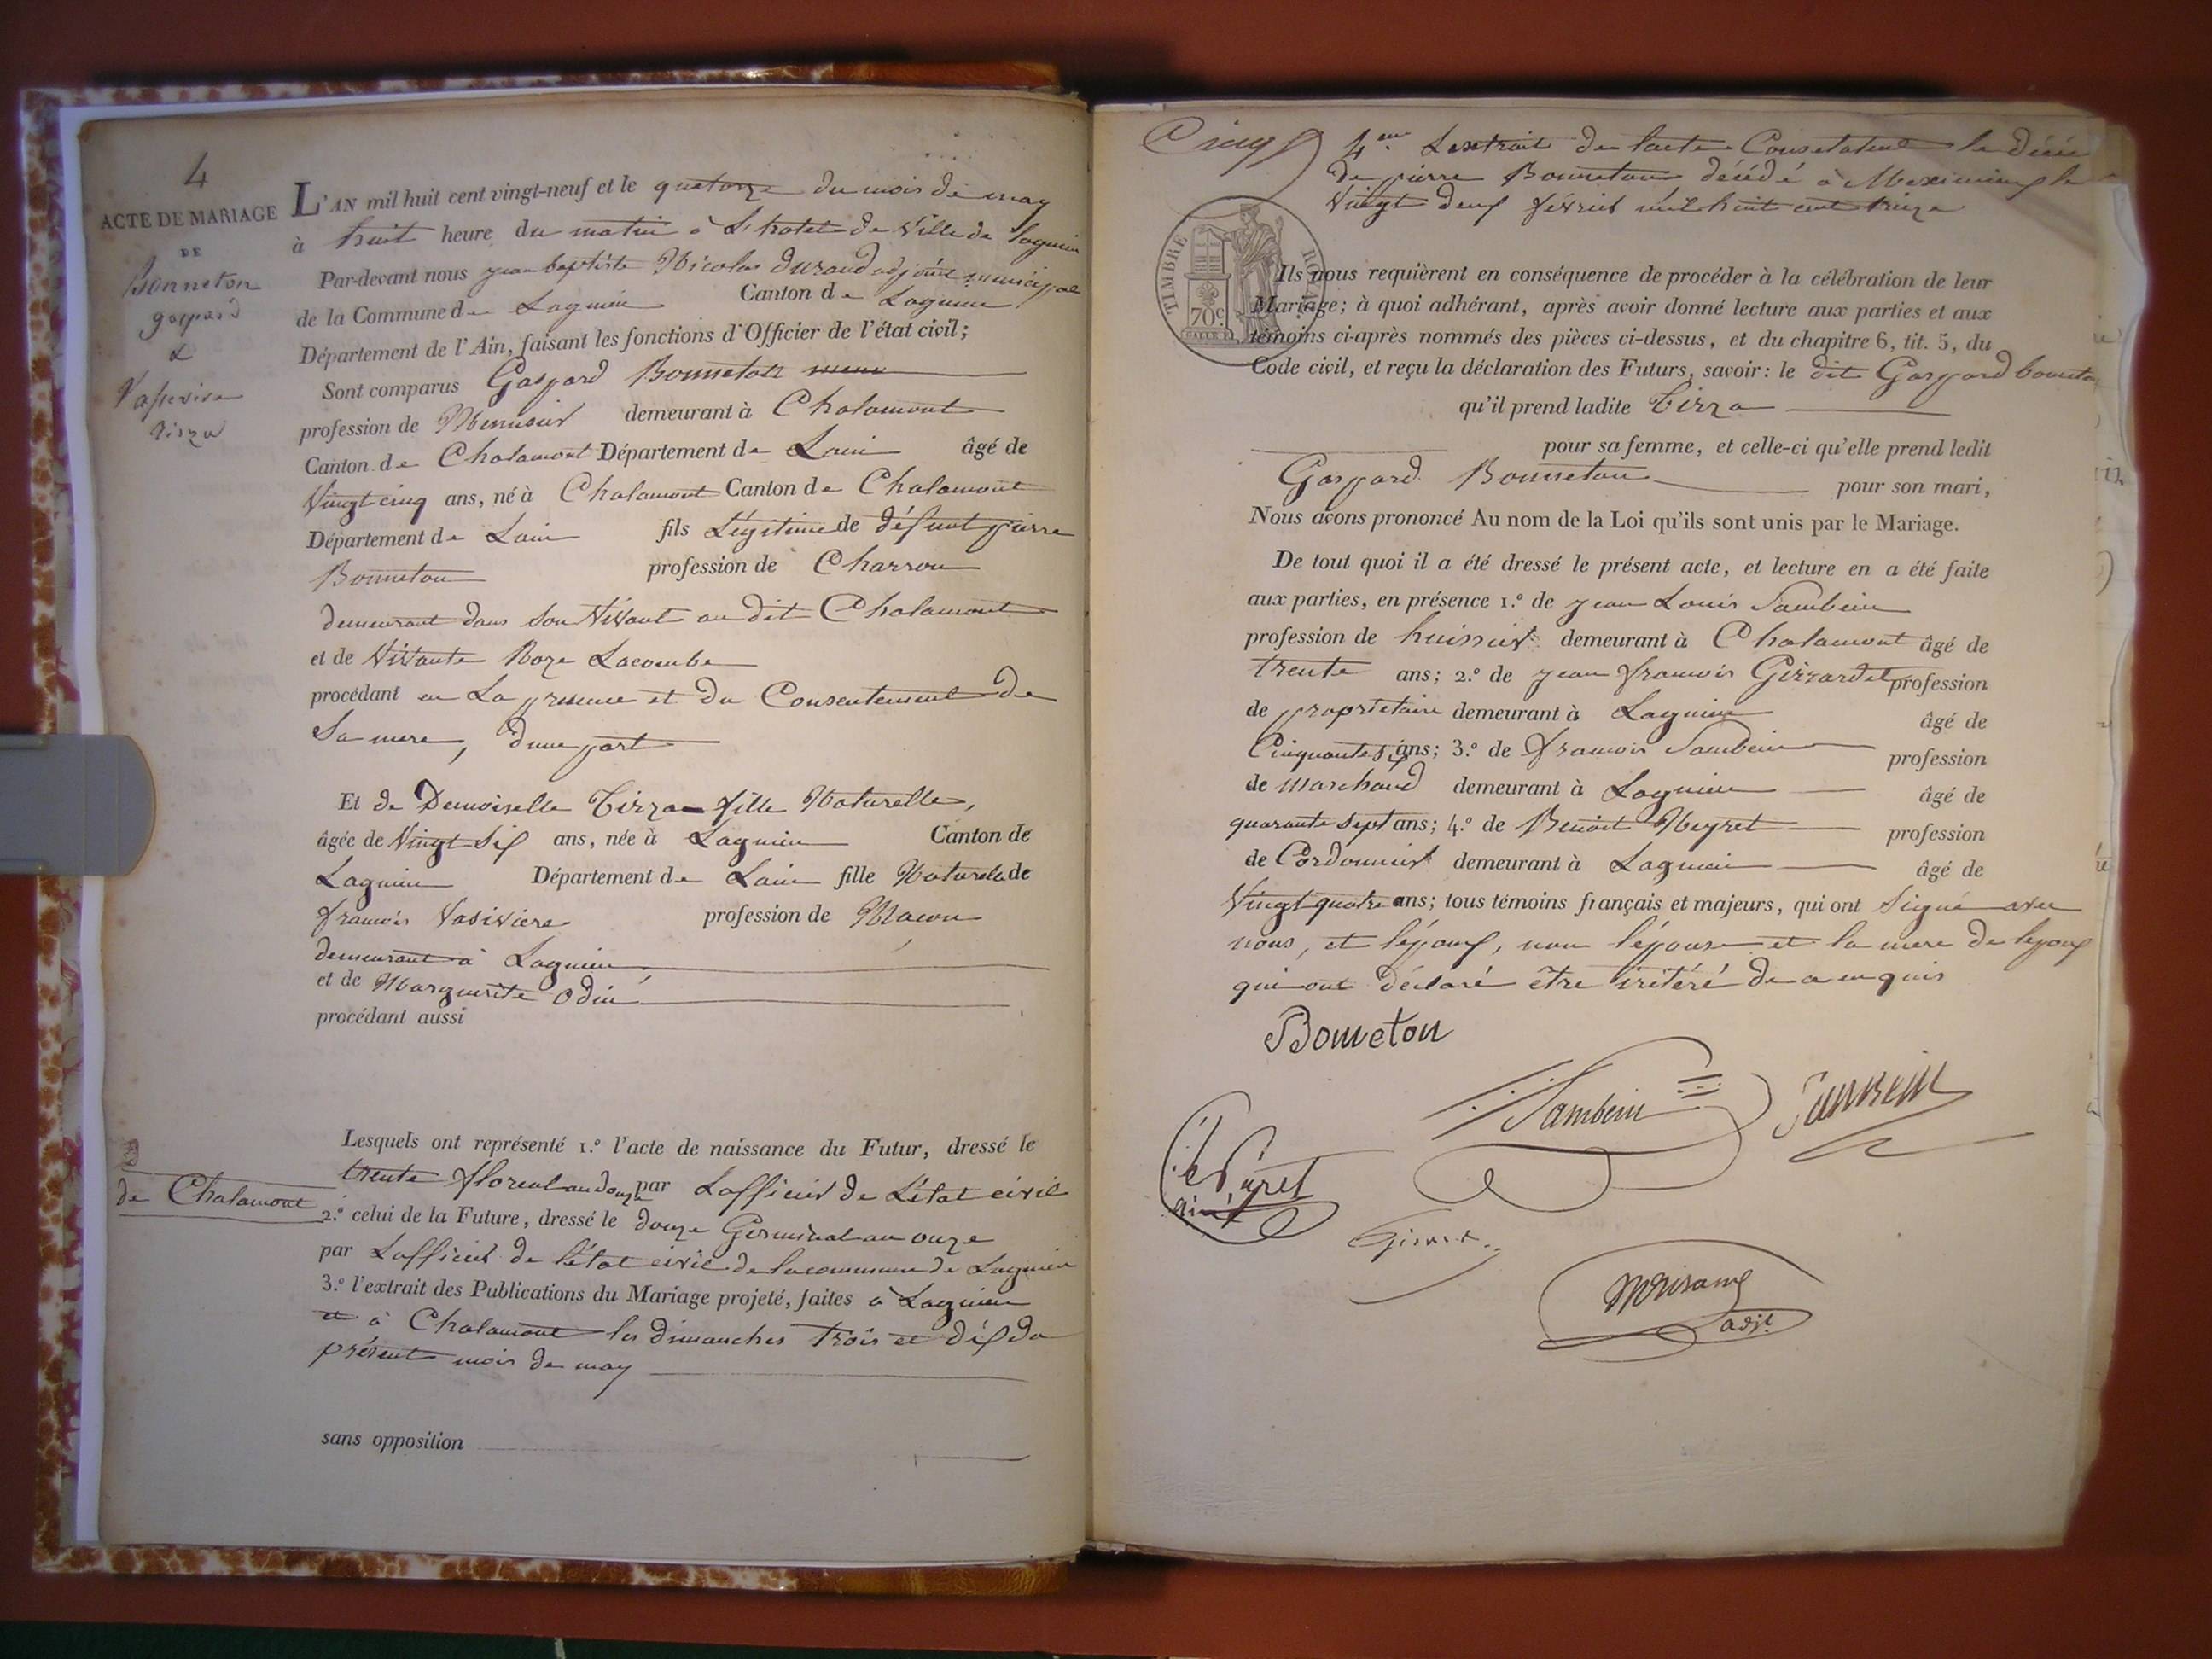 4
ACTE DE MARIAGE
DE
Bonneton
gaspard
&
Vassivira
tirza
L'AN mil huit cent vingt-neuf et le quatorze du mois de may
à huit heure du matin à L'hotel de Ville de Lagnieu
Par-devant nous jean baptiste Nicolas durand adjoint municipal
de la Commune de Lagnieu Canton de Lagnieu
Département de l'Ain, faisant les fonctions d'Officier de l'état civil;
Sont comparus Gaspard Bonneton
profession de Menuisier demeurant à Chalamont
Canton de Chalamont Département de Lain âgé de
Vingt cinq ans, né à Chalamont Canton de Chalamont
Département de Lain fils Légitime de défunt pierre
Bonneton profession de Charron
demeurant dans son Vivant au dit Chalamont
et de Vivante Roze Lacombe
procédant en La presence et du Consentement de
Sa mere, dune part
Et de Demoiselle Tirza fille Naturelle,
âgée de Vingt Six ans, née à Lagnieu Canton de
Lagnieu Département de Lain fille Naturele de
francois Vasiviere profession de Macon
demeurant à Lagnieu
et de Marguerite Odin
procédant aussi
Lesquels ont représenté 1.º l'acte de naissance du Futur, dressé le
trente floreal an douze par Lofficier de L'état civil
de Chalamont
2.º celui de la Future, dressé le douze Germinal an onze
par Lofficier de l'état civil de la commune de Lagnieu
3.º l'extrait des Publications du Mariage projeté, faites à Lagnieu
et à Chalamont les dimanches trois et dix du
présent mois de may
sans opposition
Cinq
4eme Lextrait de lacte Constatant le décès
de pierre Bonneton décédé à Meximieux le
Vingt deux fevrier mil huit cent treize
TIMBRE ROYAL
70c
Ils nous requièrent en conséquence de procéder à la célébration de leur
Mariage; à quoi adhérant, après avoir donné lecture aux parties et aux
témoins ci-après nommés des pièces ci-dessus, et du chapitre 6, tit. 5, du
Code civil, et reçu la déclaration des Futurs, savoir: le dit Gaspard bonneton
qu'il prend ladite Tirza
pour sa femme, et celle-ci qu'elle prend ledit
Gaspard Bonneton pour son mari,
Nous avons prononcé Au nom de la Loi qu'ils sont unis par le Mariage.
De tout quoi il a été dressé le présent acte, et lecture en a été faite
aux parties, en présence 1.º de jean Louis Sambein
profession de huissier demeurant à Chalamont âgé de
trente ans; 2.º de jean francois Girrardet profession
de proprietaire demeurant à Lagnieu âgé de
Cinquante six ans; 3.º de francois Sambein profession
de Marchand demeurant à Lagnieu âgé de
quarante sept ans; 4.º de Benoit Neyret profession
de Cordonnier demeurant à Lagnieu âgé de
Vingt quatre ans; tous témoins français et majeurs, qui ont Signé avec
nous, et l'époux, non l'épouse et la mere de lepoux
qui ont déclaré être iritéré de ce enquis
Bonneton
Sambein
Sambein